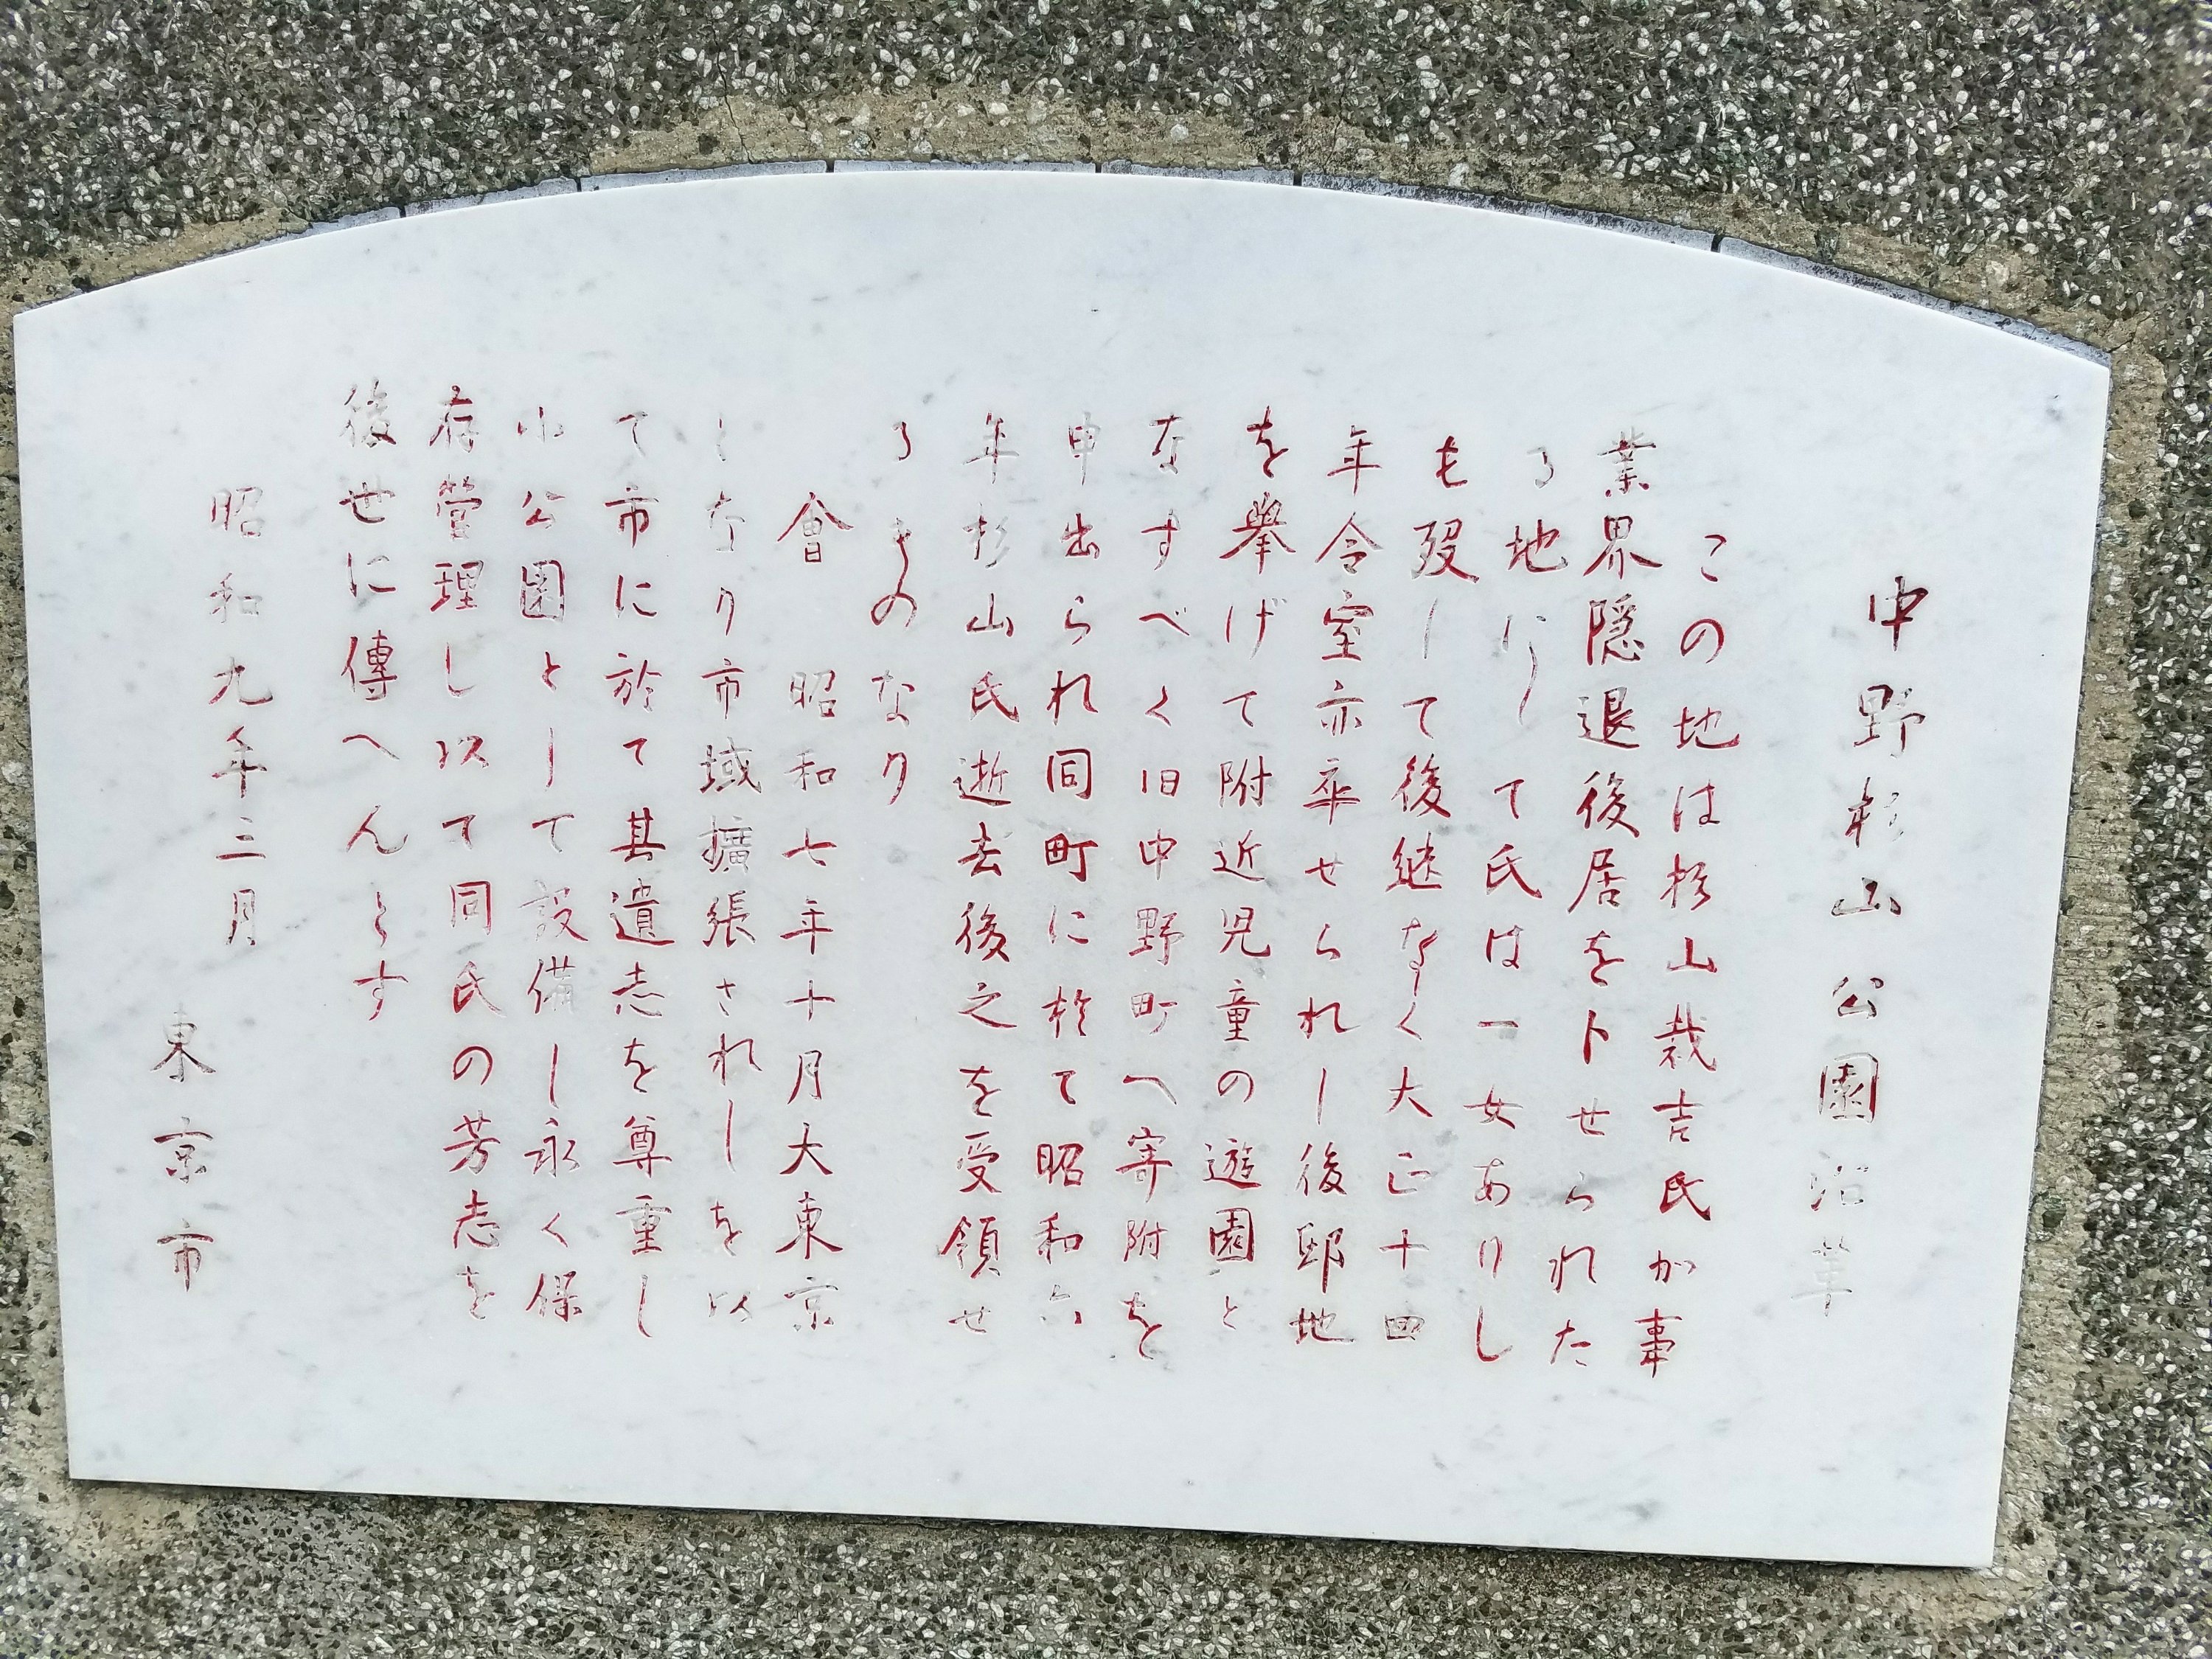 中野杉山公園沿革
この地は杉山栽吉氏が事
業界隠退後居を卜せられた
る地にして氏は一女ありし
も歿して後継なく大正十四
年令室亦卒せられし後邸地
を挙げて附近児童の遊園と
なすべく旧中野町へ寄附を
申出られ同町に於て昭和六
年杉山氏逝去後之を受領せ
るものなり
會昭和七年十月大東京
となり市域擴張されしを以
て市に於て其遺志を尊重し
小公園として設備し永く保
存管理し以て同氏の芳志を
後世に傳へんとす
昭和九年三月
東京市